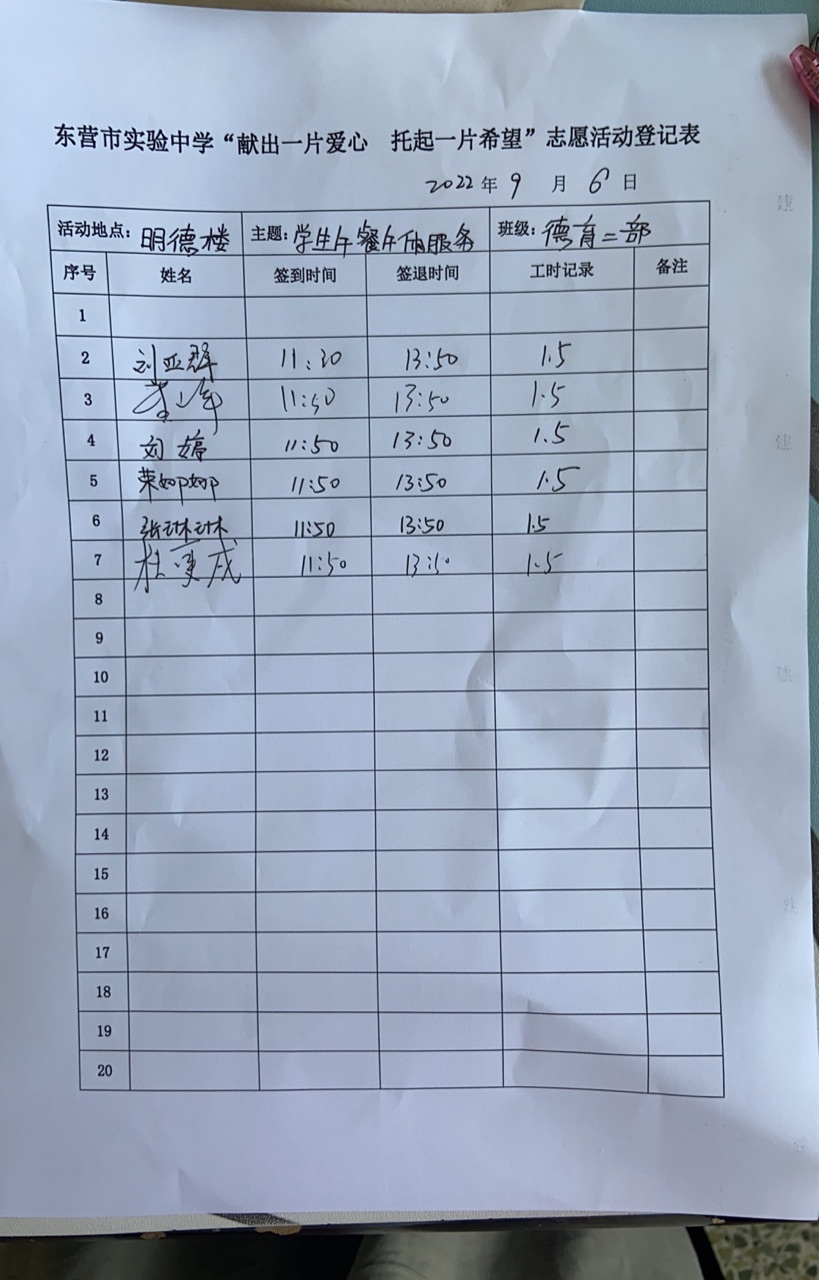 东营市实验中学“献出一片爱心 托起一片希望”志愿活动登记表
2022年9月6日
活动地点：明德楼 主题：学生午餐午休服务 班级：德育二部
序号 姓名 签到时间 签退时间 工时记录 备注
1
2 刘亚群 11:30 13:50 1.5
3 11:50 13:50 1.5
4 刘婷 11:50 13:50 1.5
5 荣娜娜 11:50 13:50 1.5
6 张琳琳 11:50 13:50 1.5
7 杜 11:50 13:50 1.5
8
9
10
11
12
13
14
15
16
17
18
19
20